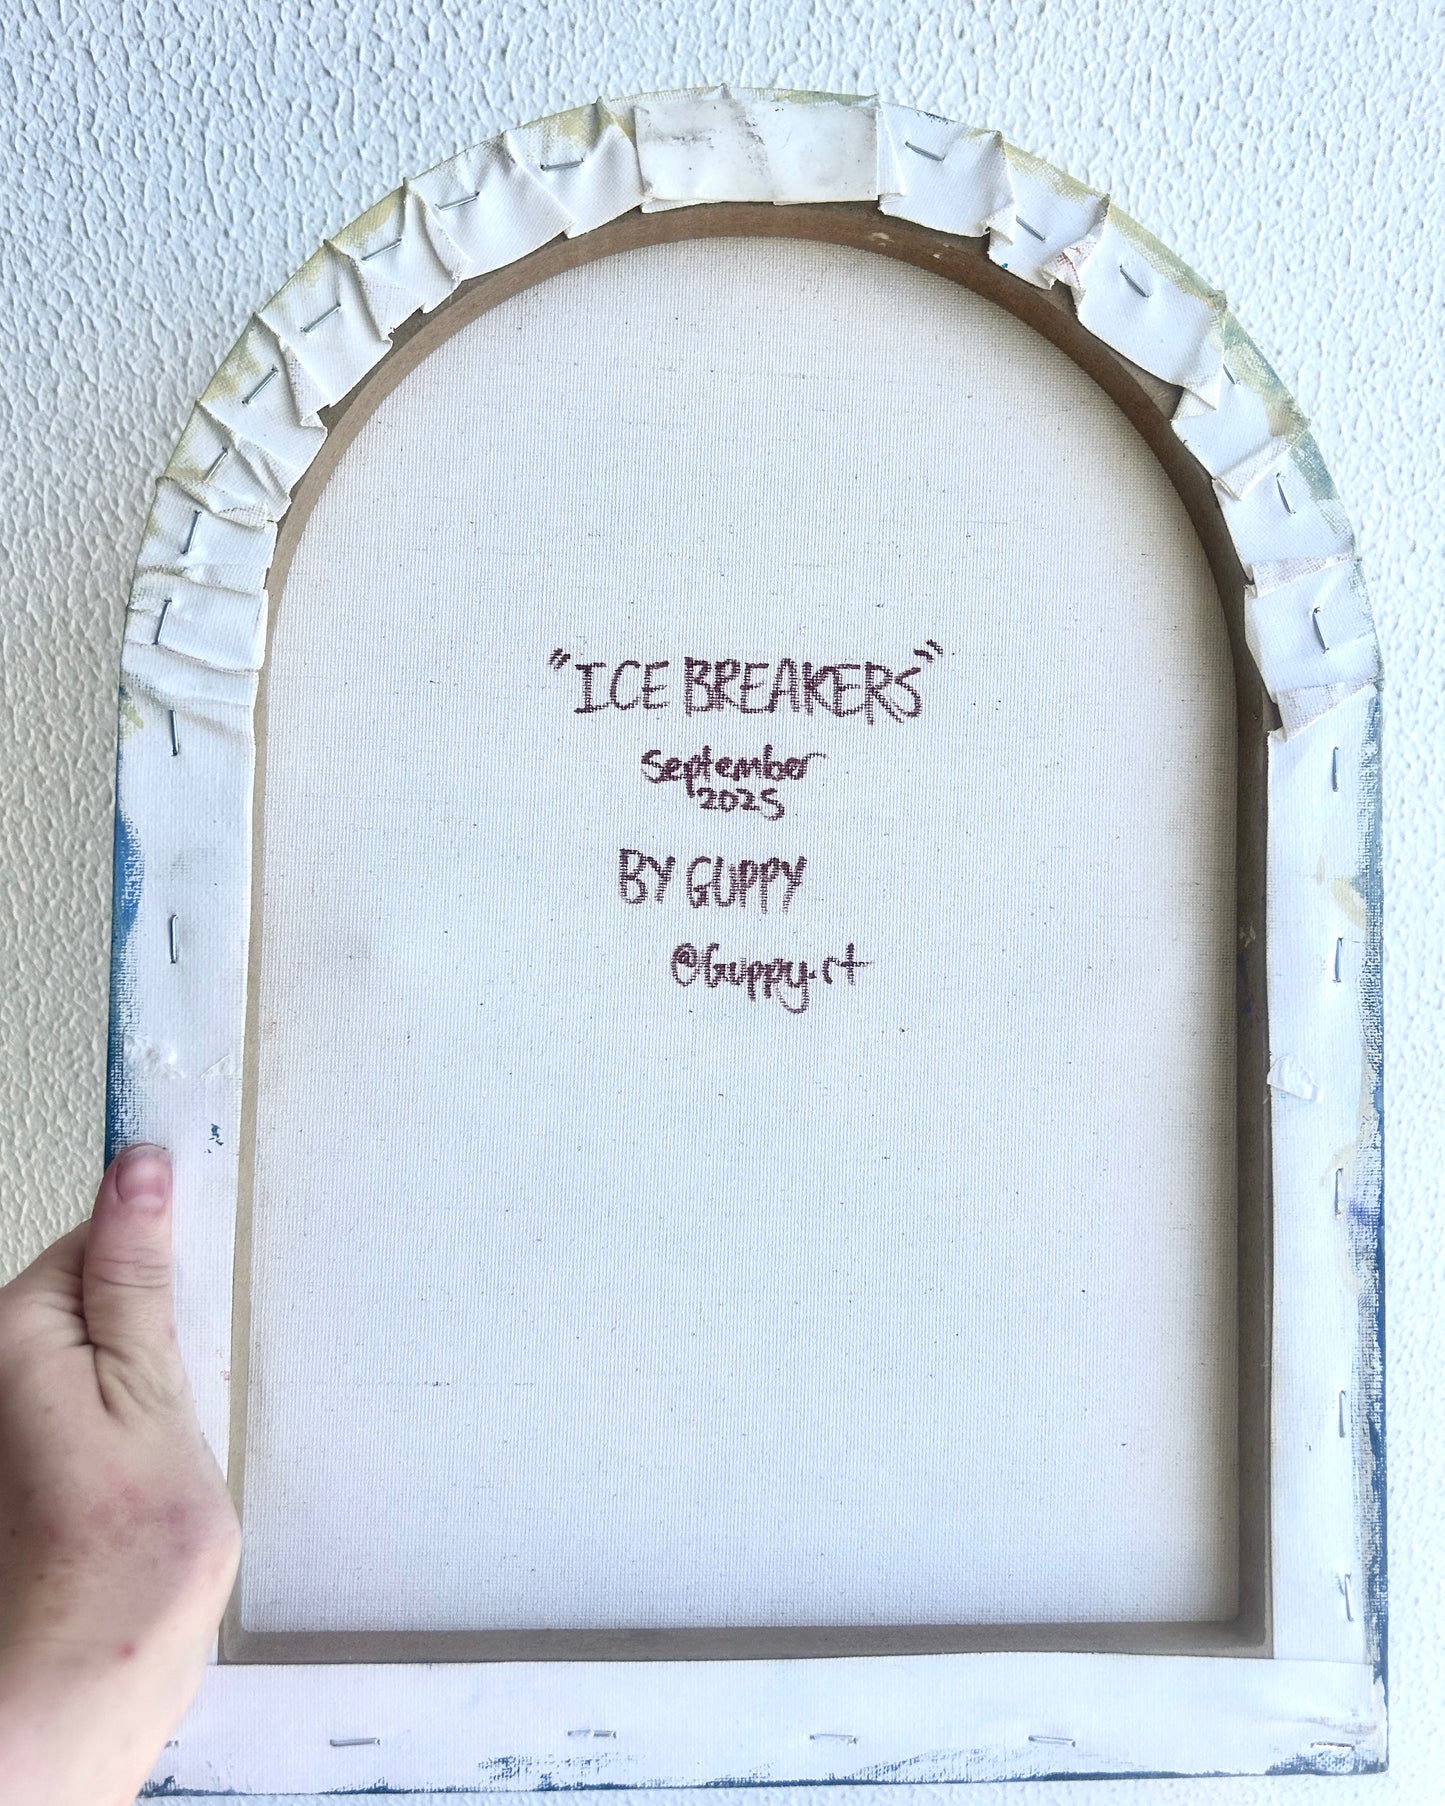 "ICE BREAKERS"
September
2025
BY GUPPY
@Guppy.rt